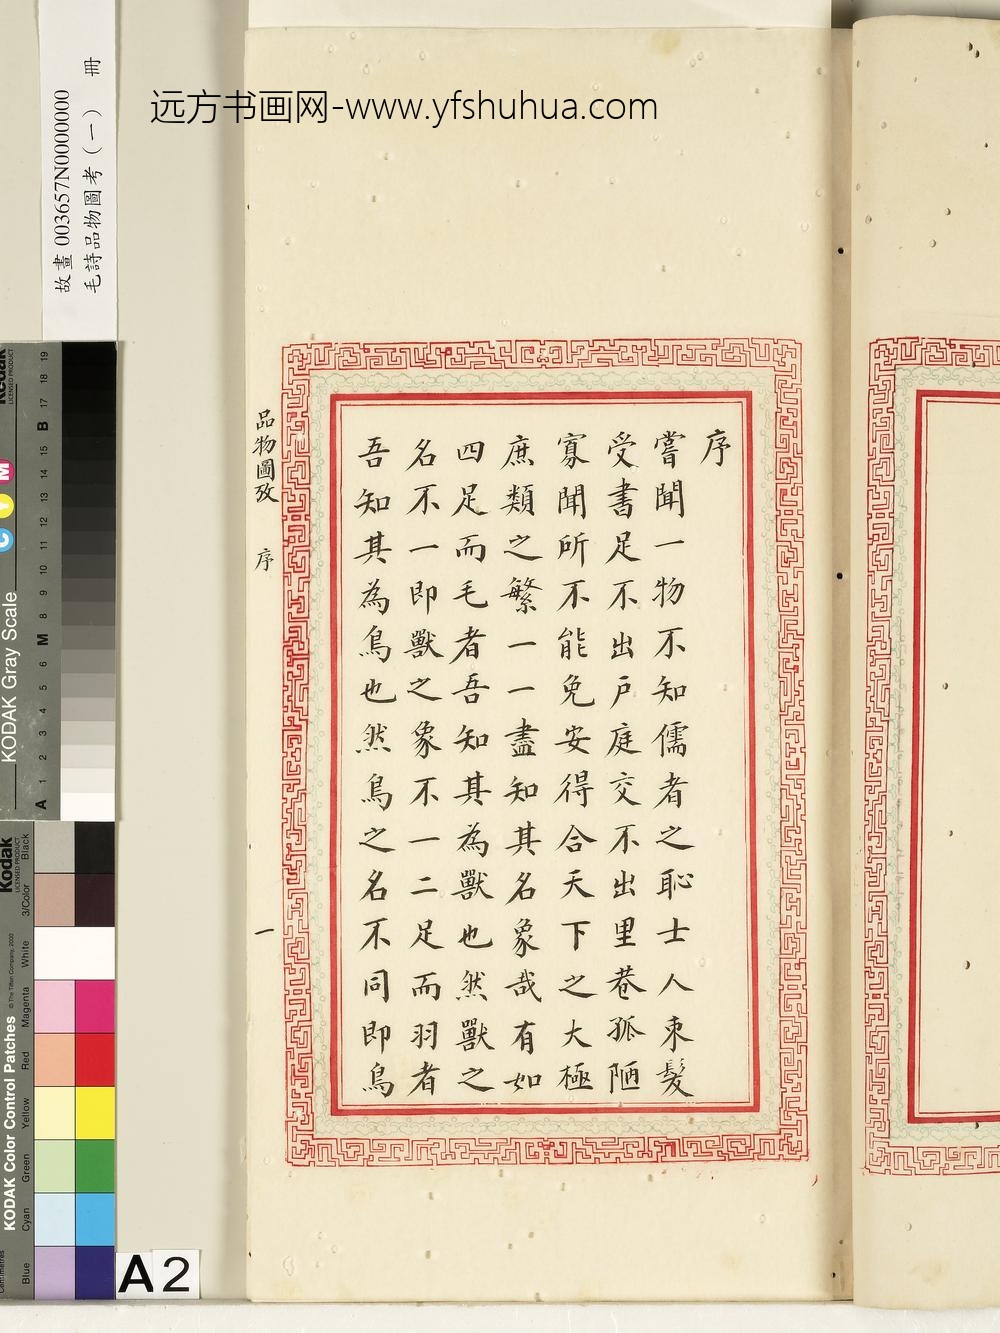 远方书画网-www.yfshuhua.com
故畫 003657N0000000
毛詩品物圖考（一） 冊
序
嘗聞一物不知儒者之恥士人束髮
受書足不出戶庭交不出里巷孤陋
寡聞所不能免安得合天下之大極
庶類之繁一一盡知其名象哉有如
四足而毛者吾知其為獸也然獸之
名不一即獸之象不一二足而羽者
吾知其為鳥也然鳥之名不同即鳥
品物圖攷 序 一
Kodak
LICENSED PRODUCT
KODAK Gray Scale
C Y M
A 1 2 3 4 5 6 M 8 9 10 11 12 13 14 15 B 17 18 19
Kodak
LICENSED PRODUCT
KODAK Color Control Patches
© The Tiffen Company, 2000
Blue Cyan Green Yellow Red Magenta White 3/Color Black
Centimetres
A 2